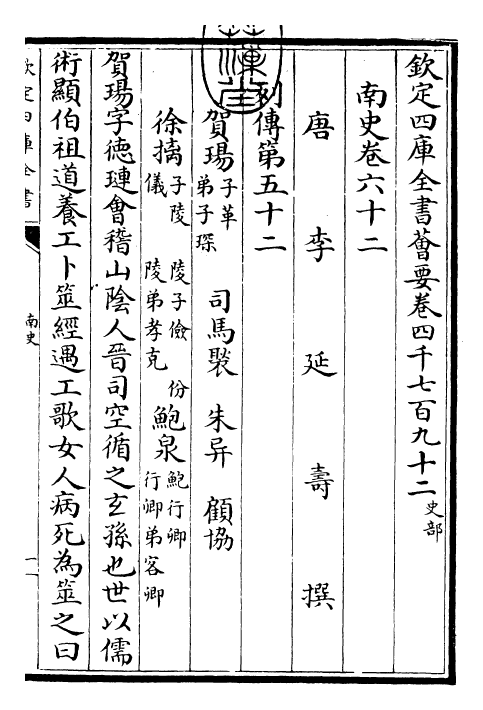 欽定四庫全書薈要卷四千七百九十二 史部
南史卷六十二
唐李延壽撰
列傳第五十二
賀瑒 子革 弟子琛 司馬褧 朱异 顧協
徐摛 子陵 陵子儉 份 儀 陵弟孝克 鮑泉 鮑行卿 行卿弟客卿
賀瑒字德璉會稽山陰人晉司空循之玄孫也世以儒
術顯伯祖道養工卜筮經遇工歌女人病死為筮之曰
欽定四庫全書
南史
一